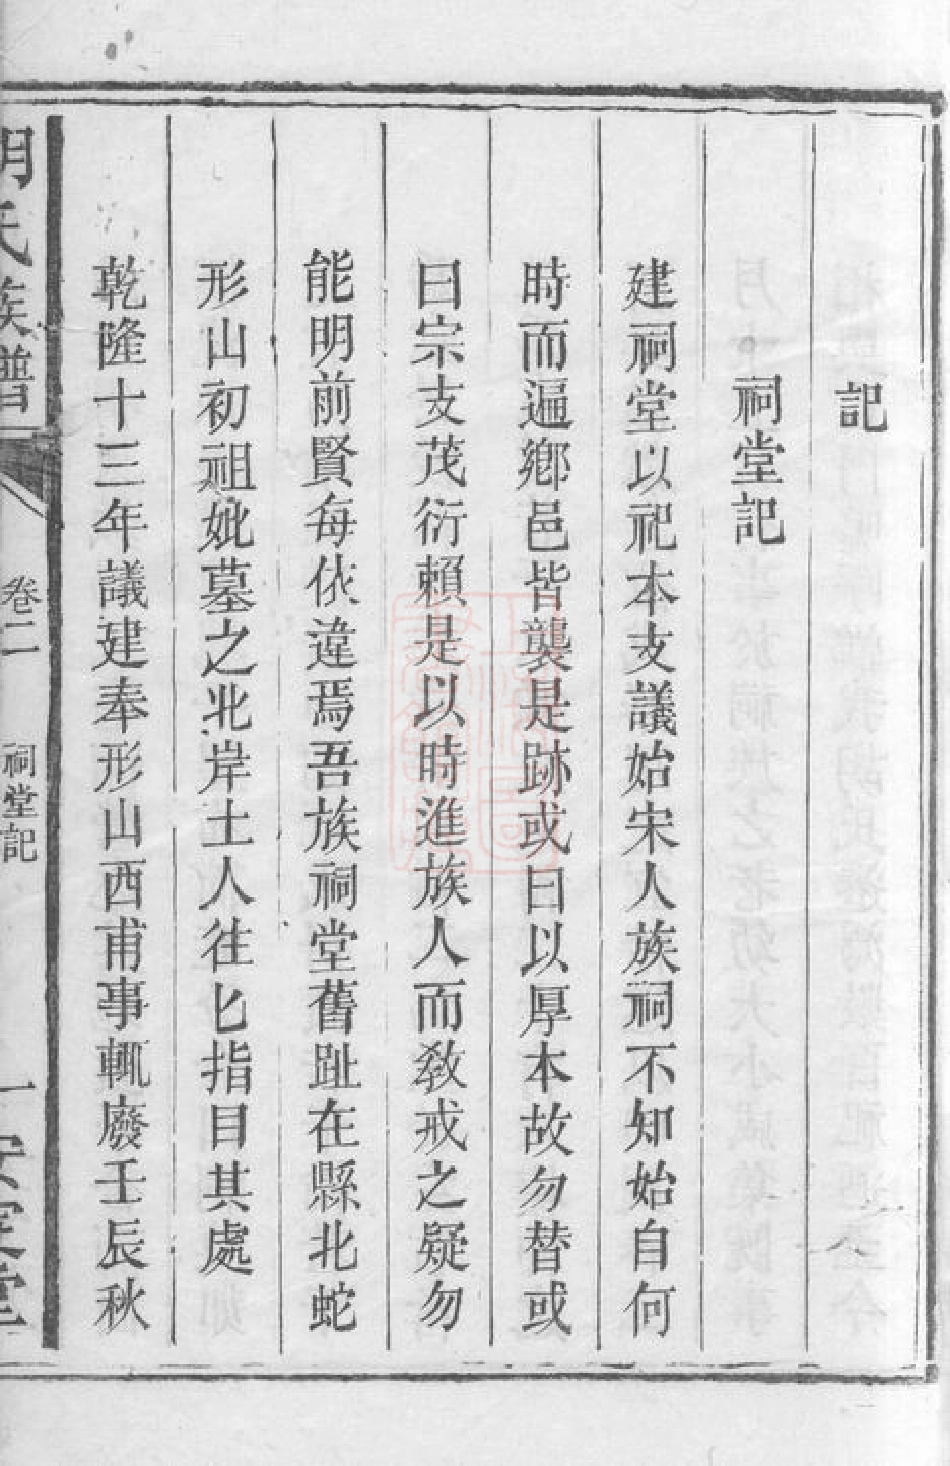 記
祠堂記
建祠堂以祀本支議始宋人族祠不知始自何
時而遍鄉邑皆襲是跡或曰以厚本故勿替或
曰宗支茂衍賴是以時進族人而教戒之疑勿
能明前賢每依違焉吾族祠堂舊趾在縣北蛇
形山初祖妣墓之北岸土人往匕指目其處
乾隆十三年議建奉形山西甫事輒廢壬辰秋
氏族譜
卷二
祠堂記
一